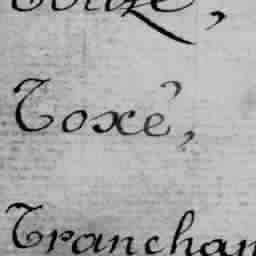 Toxé,
Tranchan